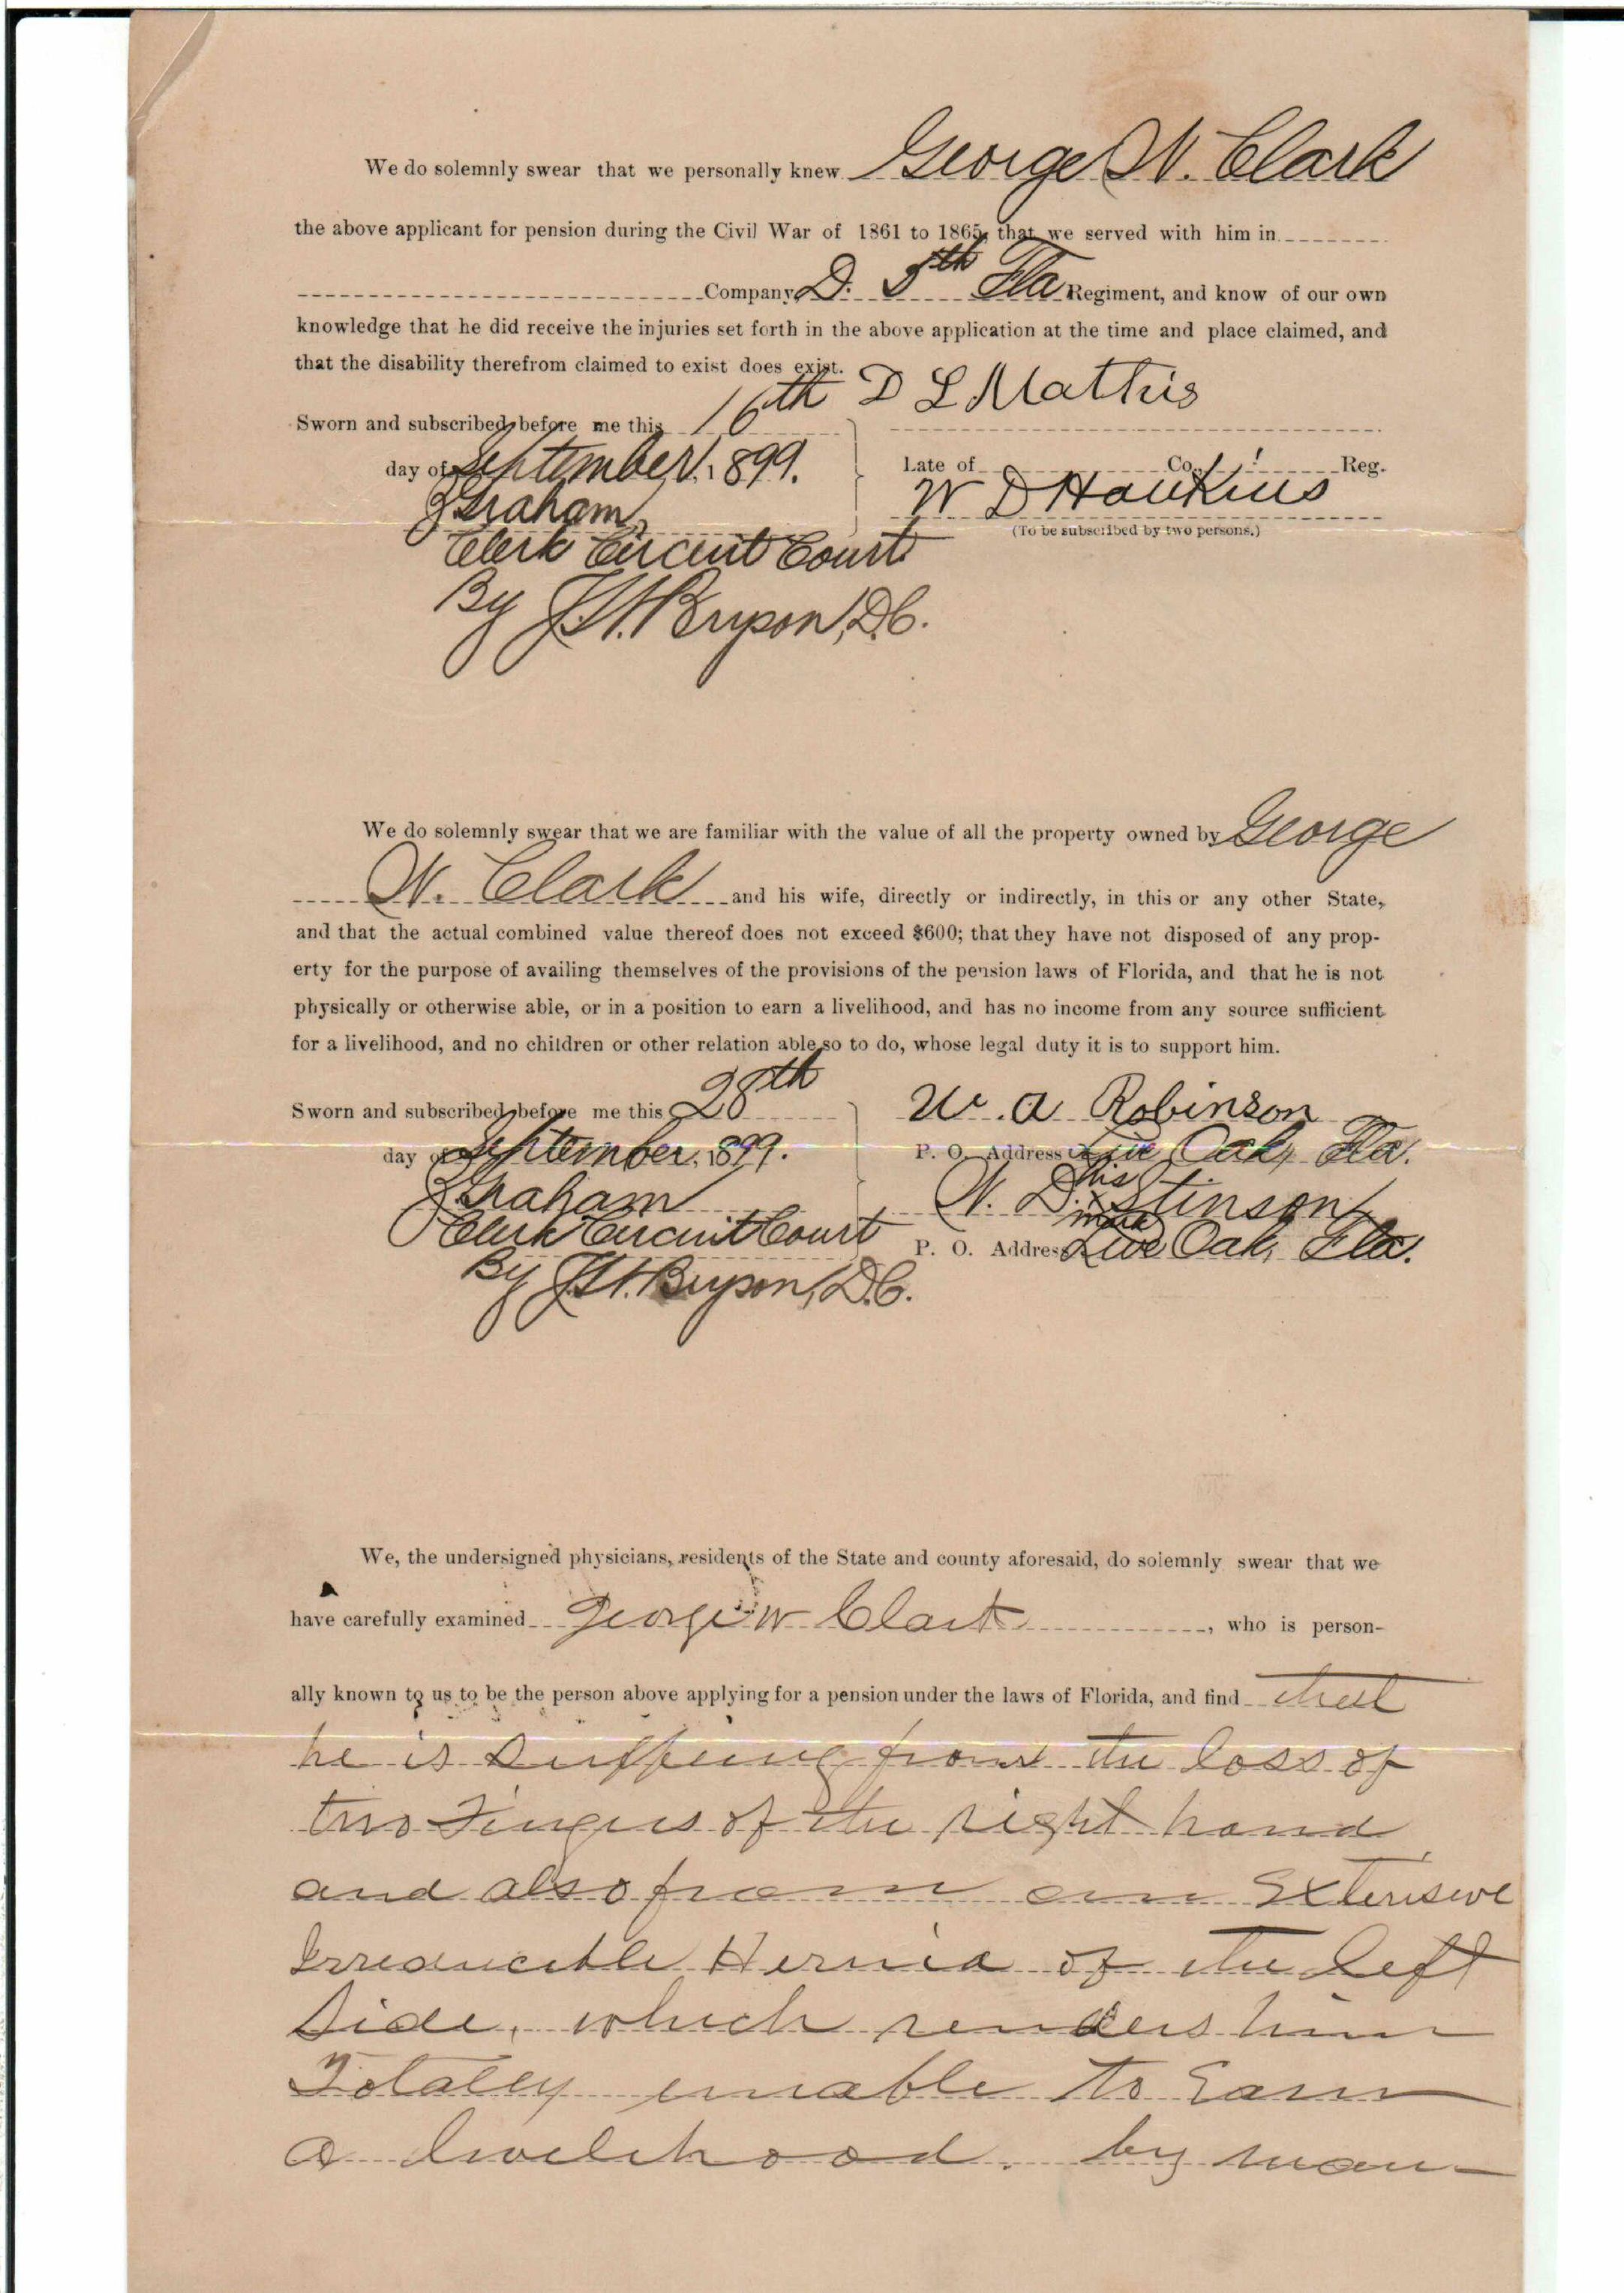 We do solemnly swear that we personally knew George W. Clark
the above applicant for pension during the Civil War of 1861 to 1865, that we served with him in
Company D. 5th Fla Regiment, and know of our own
knowledge that he did receive the injuries set forth in the above application at the time and place claimed, and
that the disability therefrom claimed to exist does exist.
D L Mathis
Sworn and subscribed before me this 16th
day of September, 1899.
Late of Co. Reg.
Graham,
W D Hawkins
(To be subscribed by two persons.)
Clerk Circuit Court
By J. H. Bryson, D.C.
We do solemnly swear that we are familiar with the value of all the property owned by George
W. Clark and his wife, directly or indirectly, in this or any other State,
and that the actual combined value thereof does not exceed $600; that they have not disposed of any prop-
erty for the purpose of availing themselves of the provisions of the pension laws of Florida, and that he is not
physically or otherwise able, or in a position to earn a livelihood, and has no income from any source sufficient
for a livelihood, and no children or other relation able so to do, whose legal duty it is to support him.
Sworn and subscribed before me this 28th
W. A Robinson
day of September, 1899.
P. O. Address Live Oak, Fla.
Graham
his
W. D. x Stinson
mark
Clerk Circuit Court
P. O. Address Live Oak, Fla.
By J. H. Bryson, D.C.
We, the undersigned physicians, residents of the State and county aforesaid, do solemnly swear that we
have carefully examined George W Clark, who is person-
ally known to us to be the person above applying for a pension under the laws of Florida, and find that
he is suffering from the loss of
two Fingers of the right hand
and also from an Extensive
Irreducible Hernia of the left
Side, which renders him
Totaley unable to Earn
a livelihood. by man-